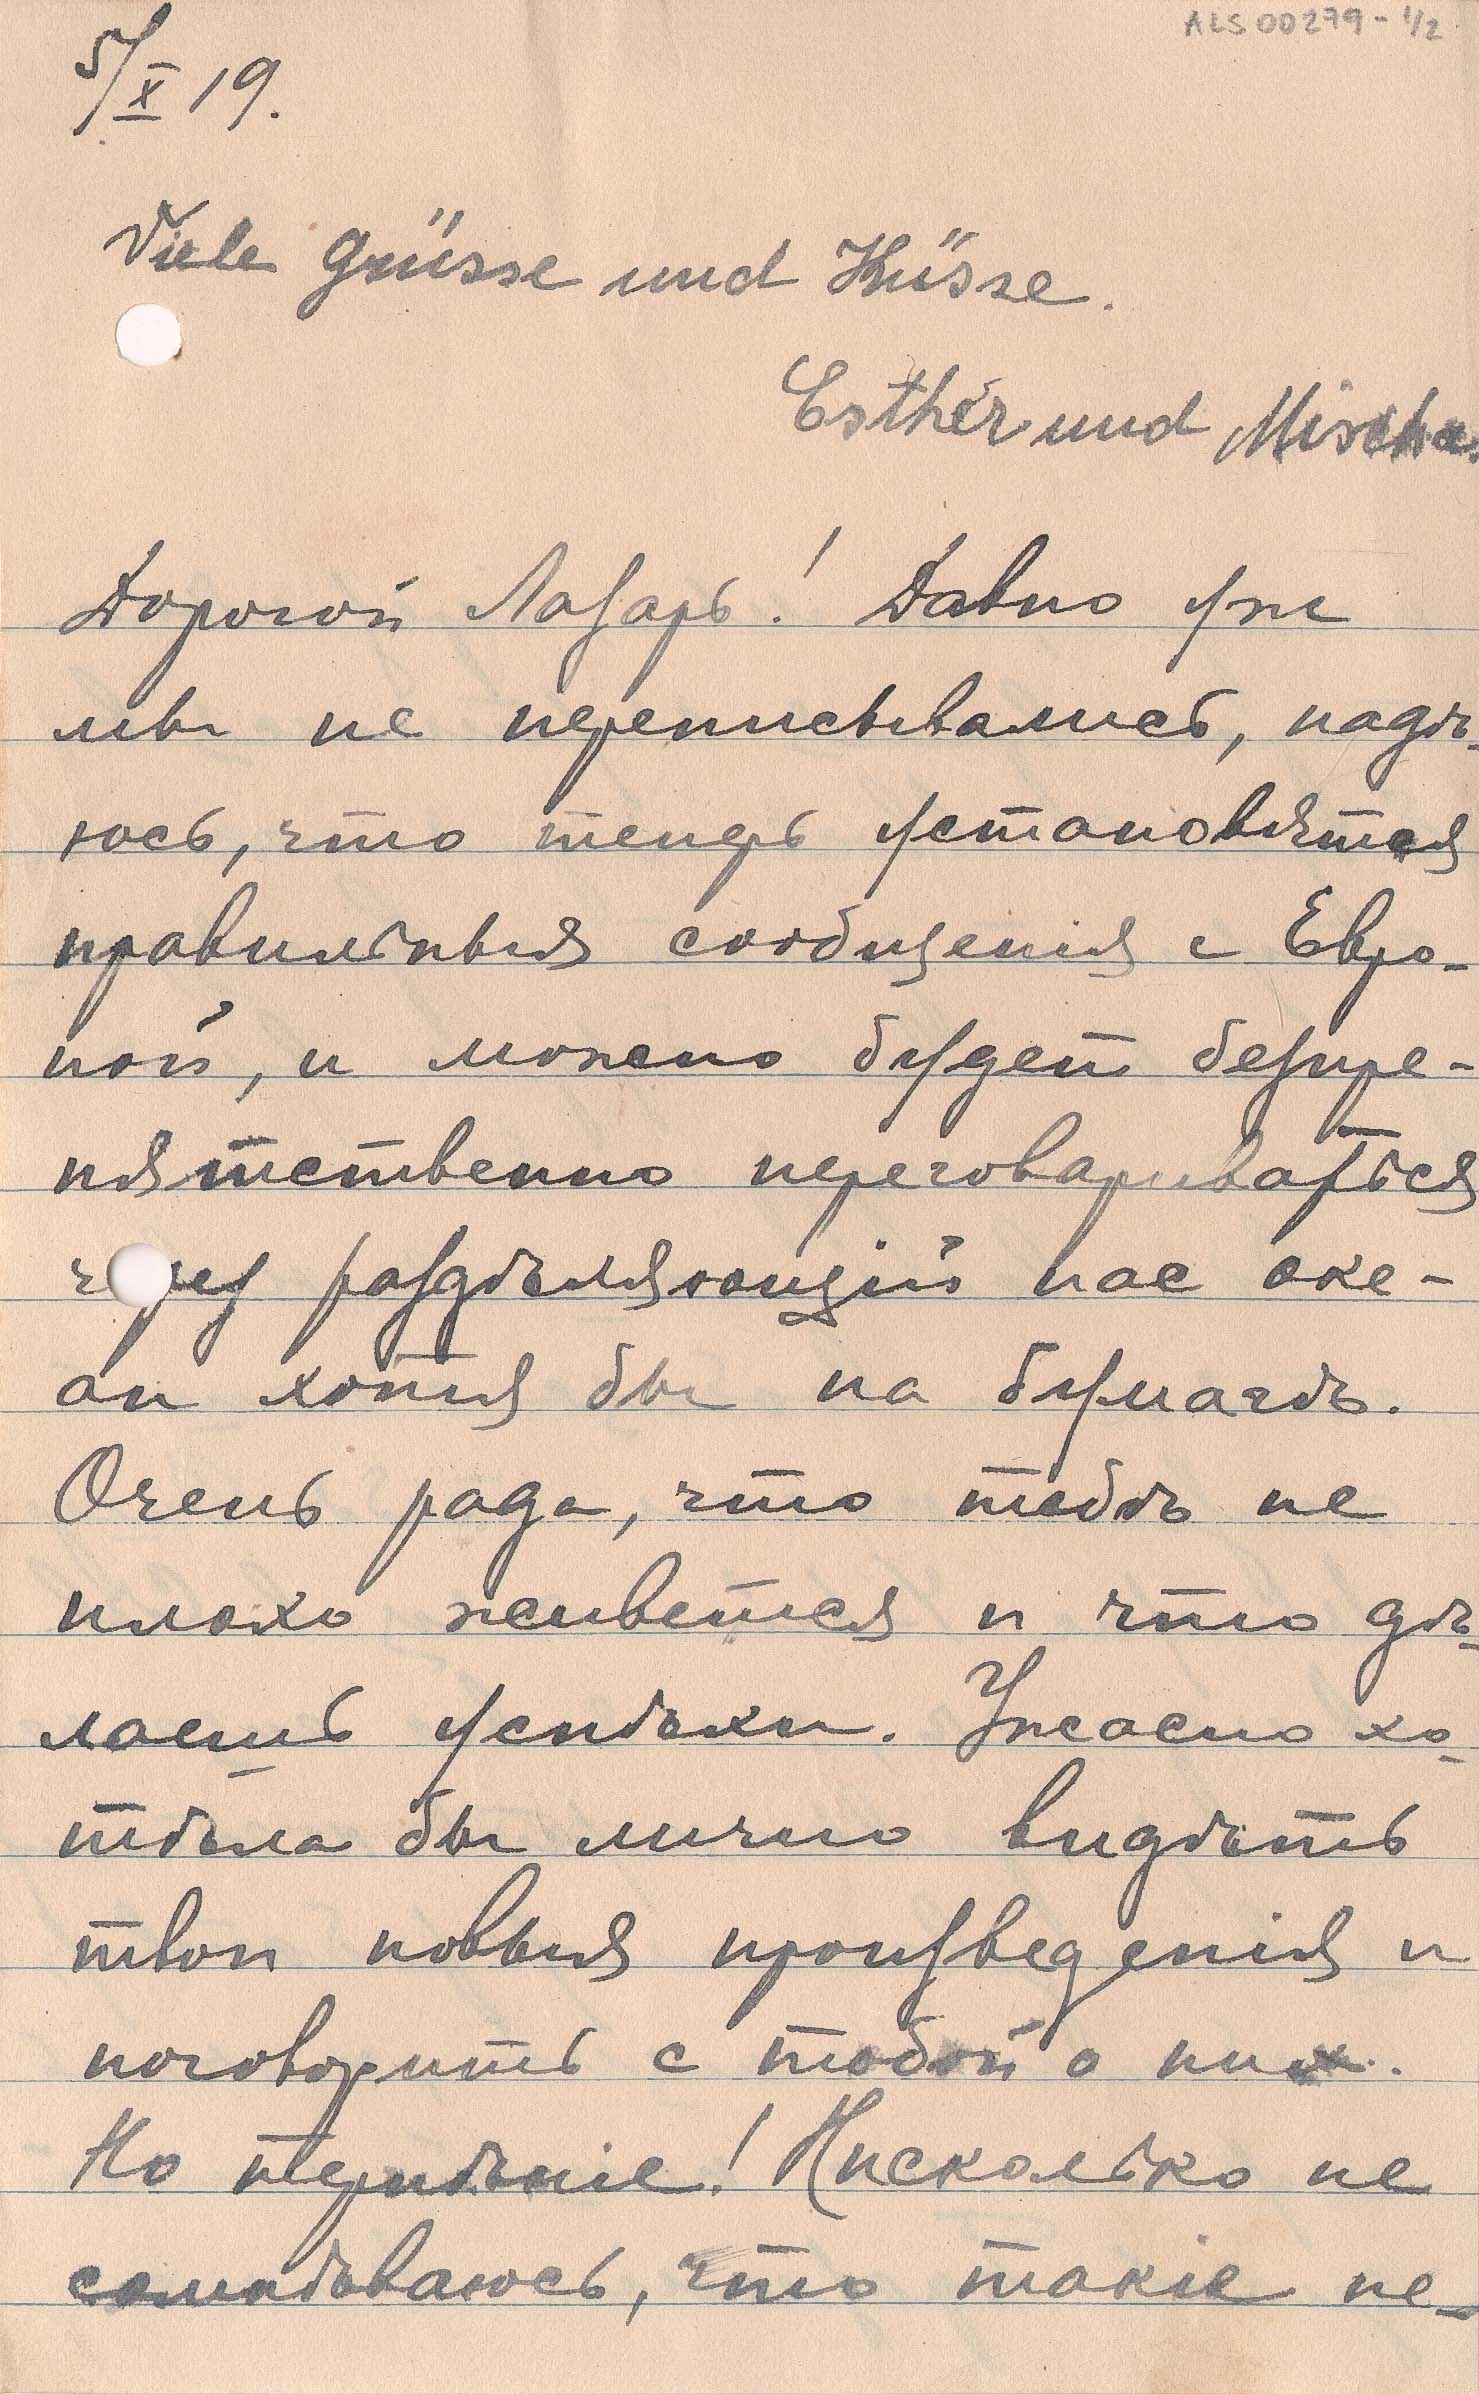 ALS 00279 - 1/2
5/X 19.
Viele Grüsse und Küsse.
Esther und Mischa.
Дорогой Лазарь! Давно уже
мы не переписывались, надѣ-
юсь, что теперь установятся
правильныя сообщенія с Евро-
пой, и можно будет безпре-
пятственно переговариваться
через раздѣляющій нас оке-
ан хотя бы на бумагѣ.
Очень рада, что тебѣ не
плохо живется и что дѣ-
лаешь успѣхи. Ужасно хо-
тѣла бы лично видѣть
твои новыя произведенія и
поговорить с тобой о них.
Но терпѣніе! Нисколько не
сомнѣваюсь, что такіе не-